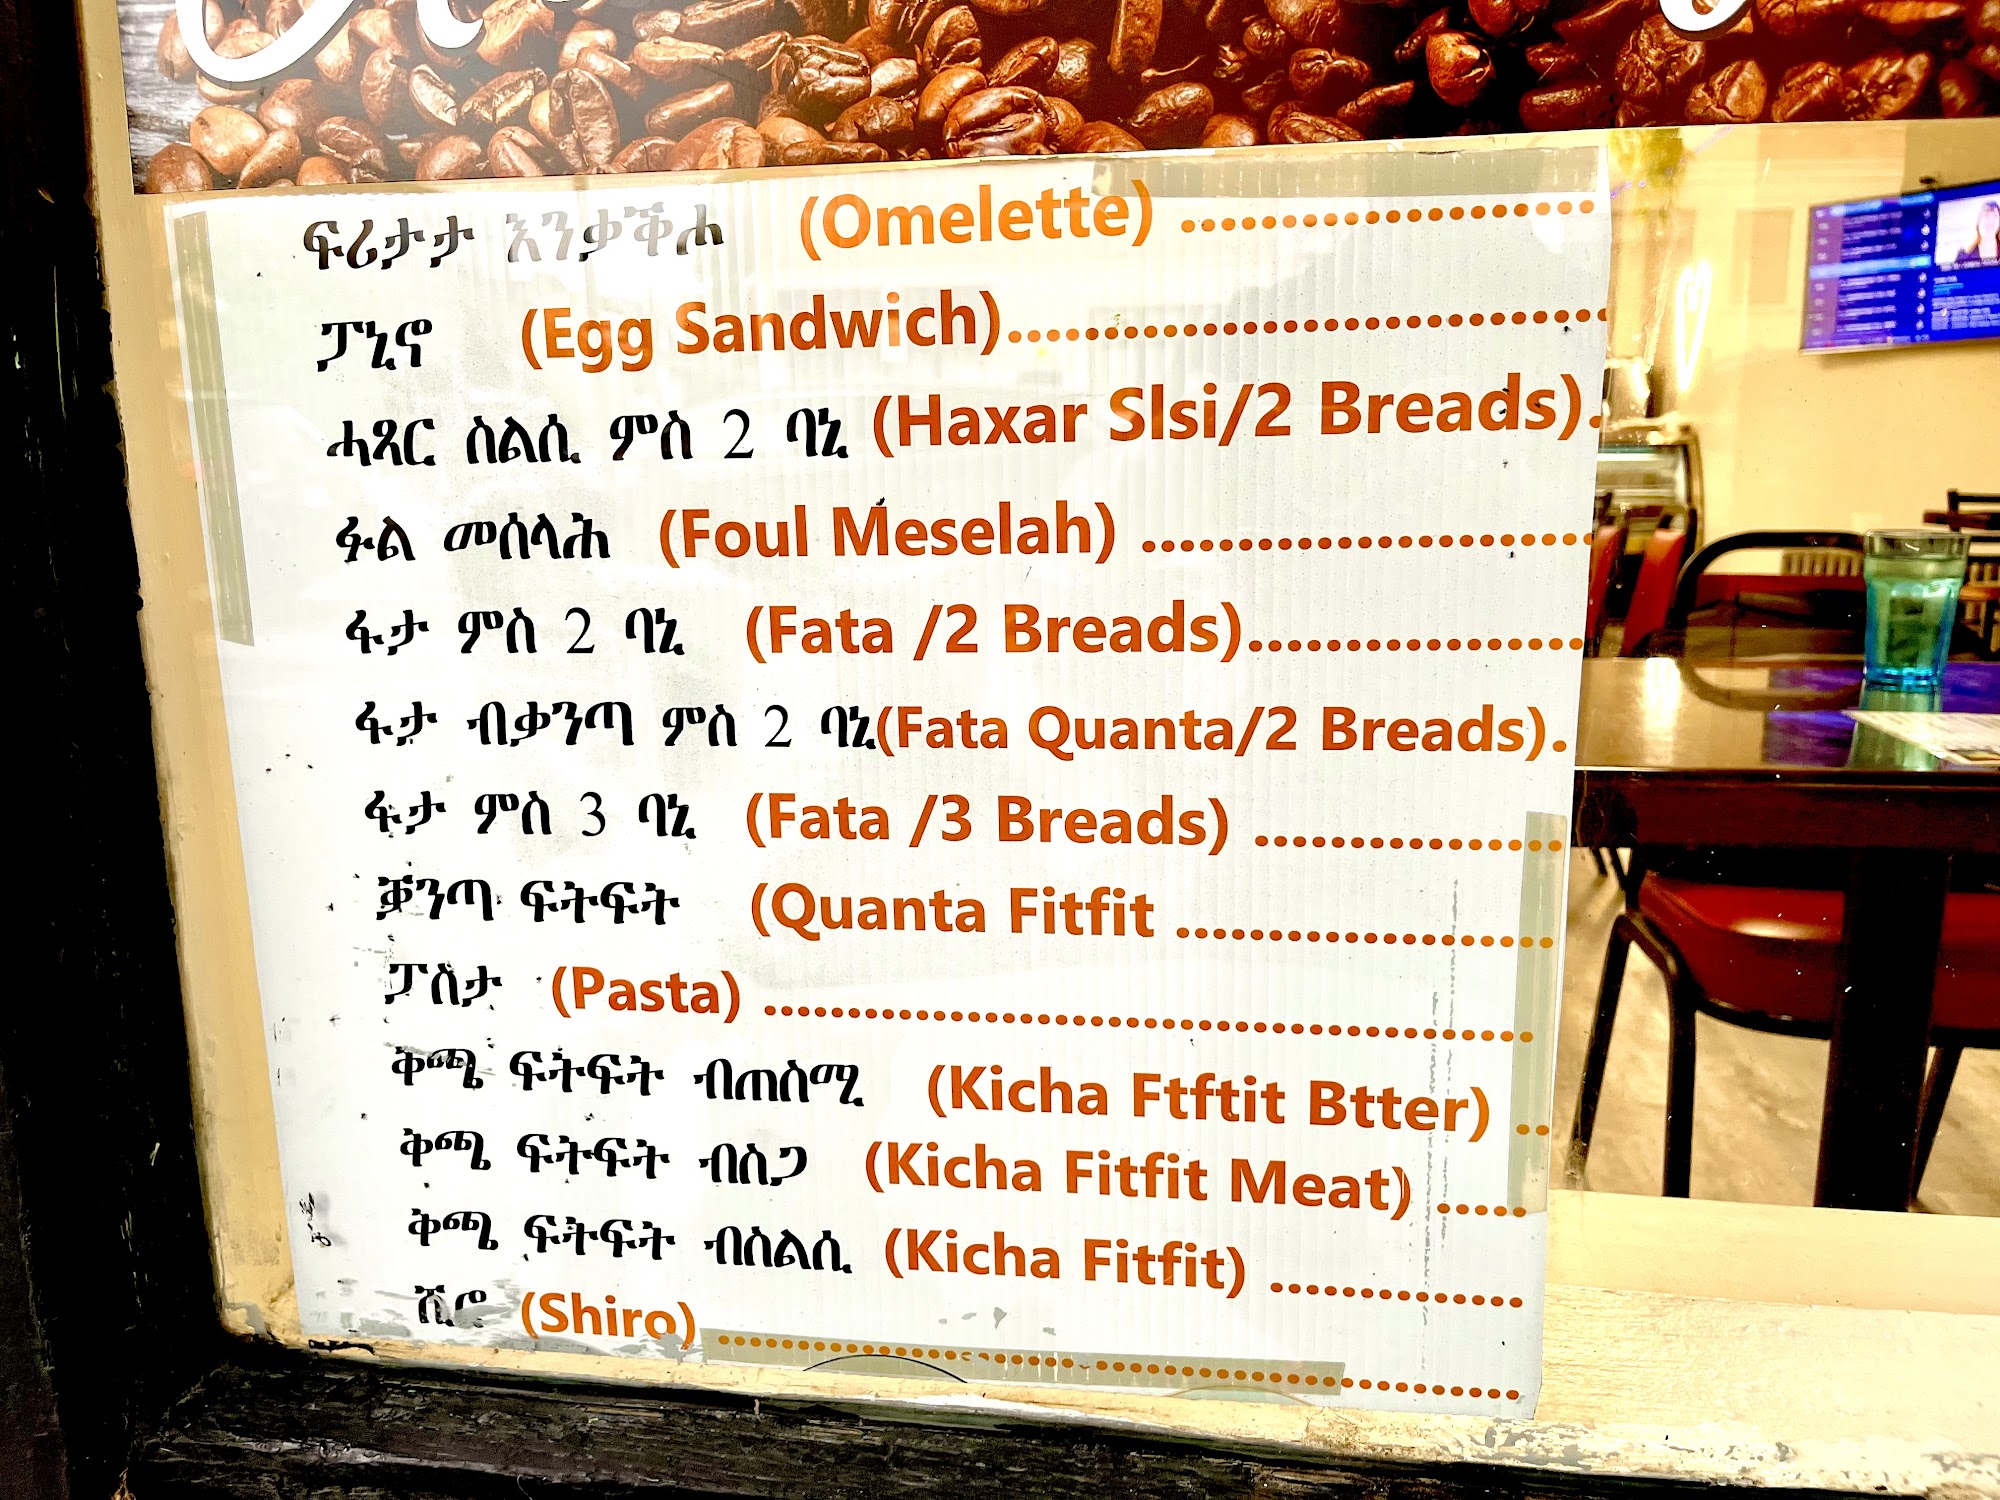 ፍሪታታ እንቃቝሖ (Omelette) ..............................
ፓኒኖ (Egg Sandwich)...........................................
ሓጻር ስልሲ ምስ 2 ባኒ (Haxar Slsi/2 Breads).
ፉል መሰላሕ (Foul Meselah) ................................
ፋታ ምስ 2 ባኒ (Fata /2 Breads).......................
ፋታ ብቃንጣ ምስ 2 ባኒ(Fata Quanta/2 Breads).
ፋታ ምስ 3 ባኒ (Fata /3 Breads) .....................
ቓንጣ ፍትፍት (Quanta Fitfit ..........................
ፓስታ (Pasta) .....................................................
ቅጫ ፍትፍት ብጠስሚ (Kicha Ftftit Btter) ..
ቅጫ ፍትፍት ብስጋ (Kicha Fitfit Meat) .....
ቅጫ ፍትፍት ብስልሲ (Kicha Fitfit) ................
ሺሮ (Shiro) .......................................................